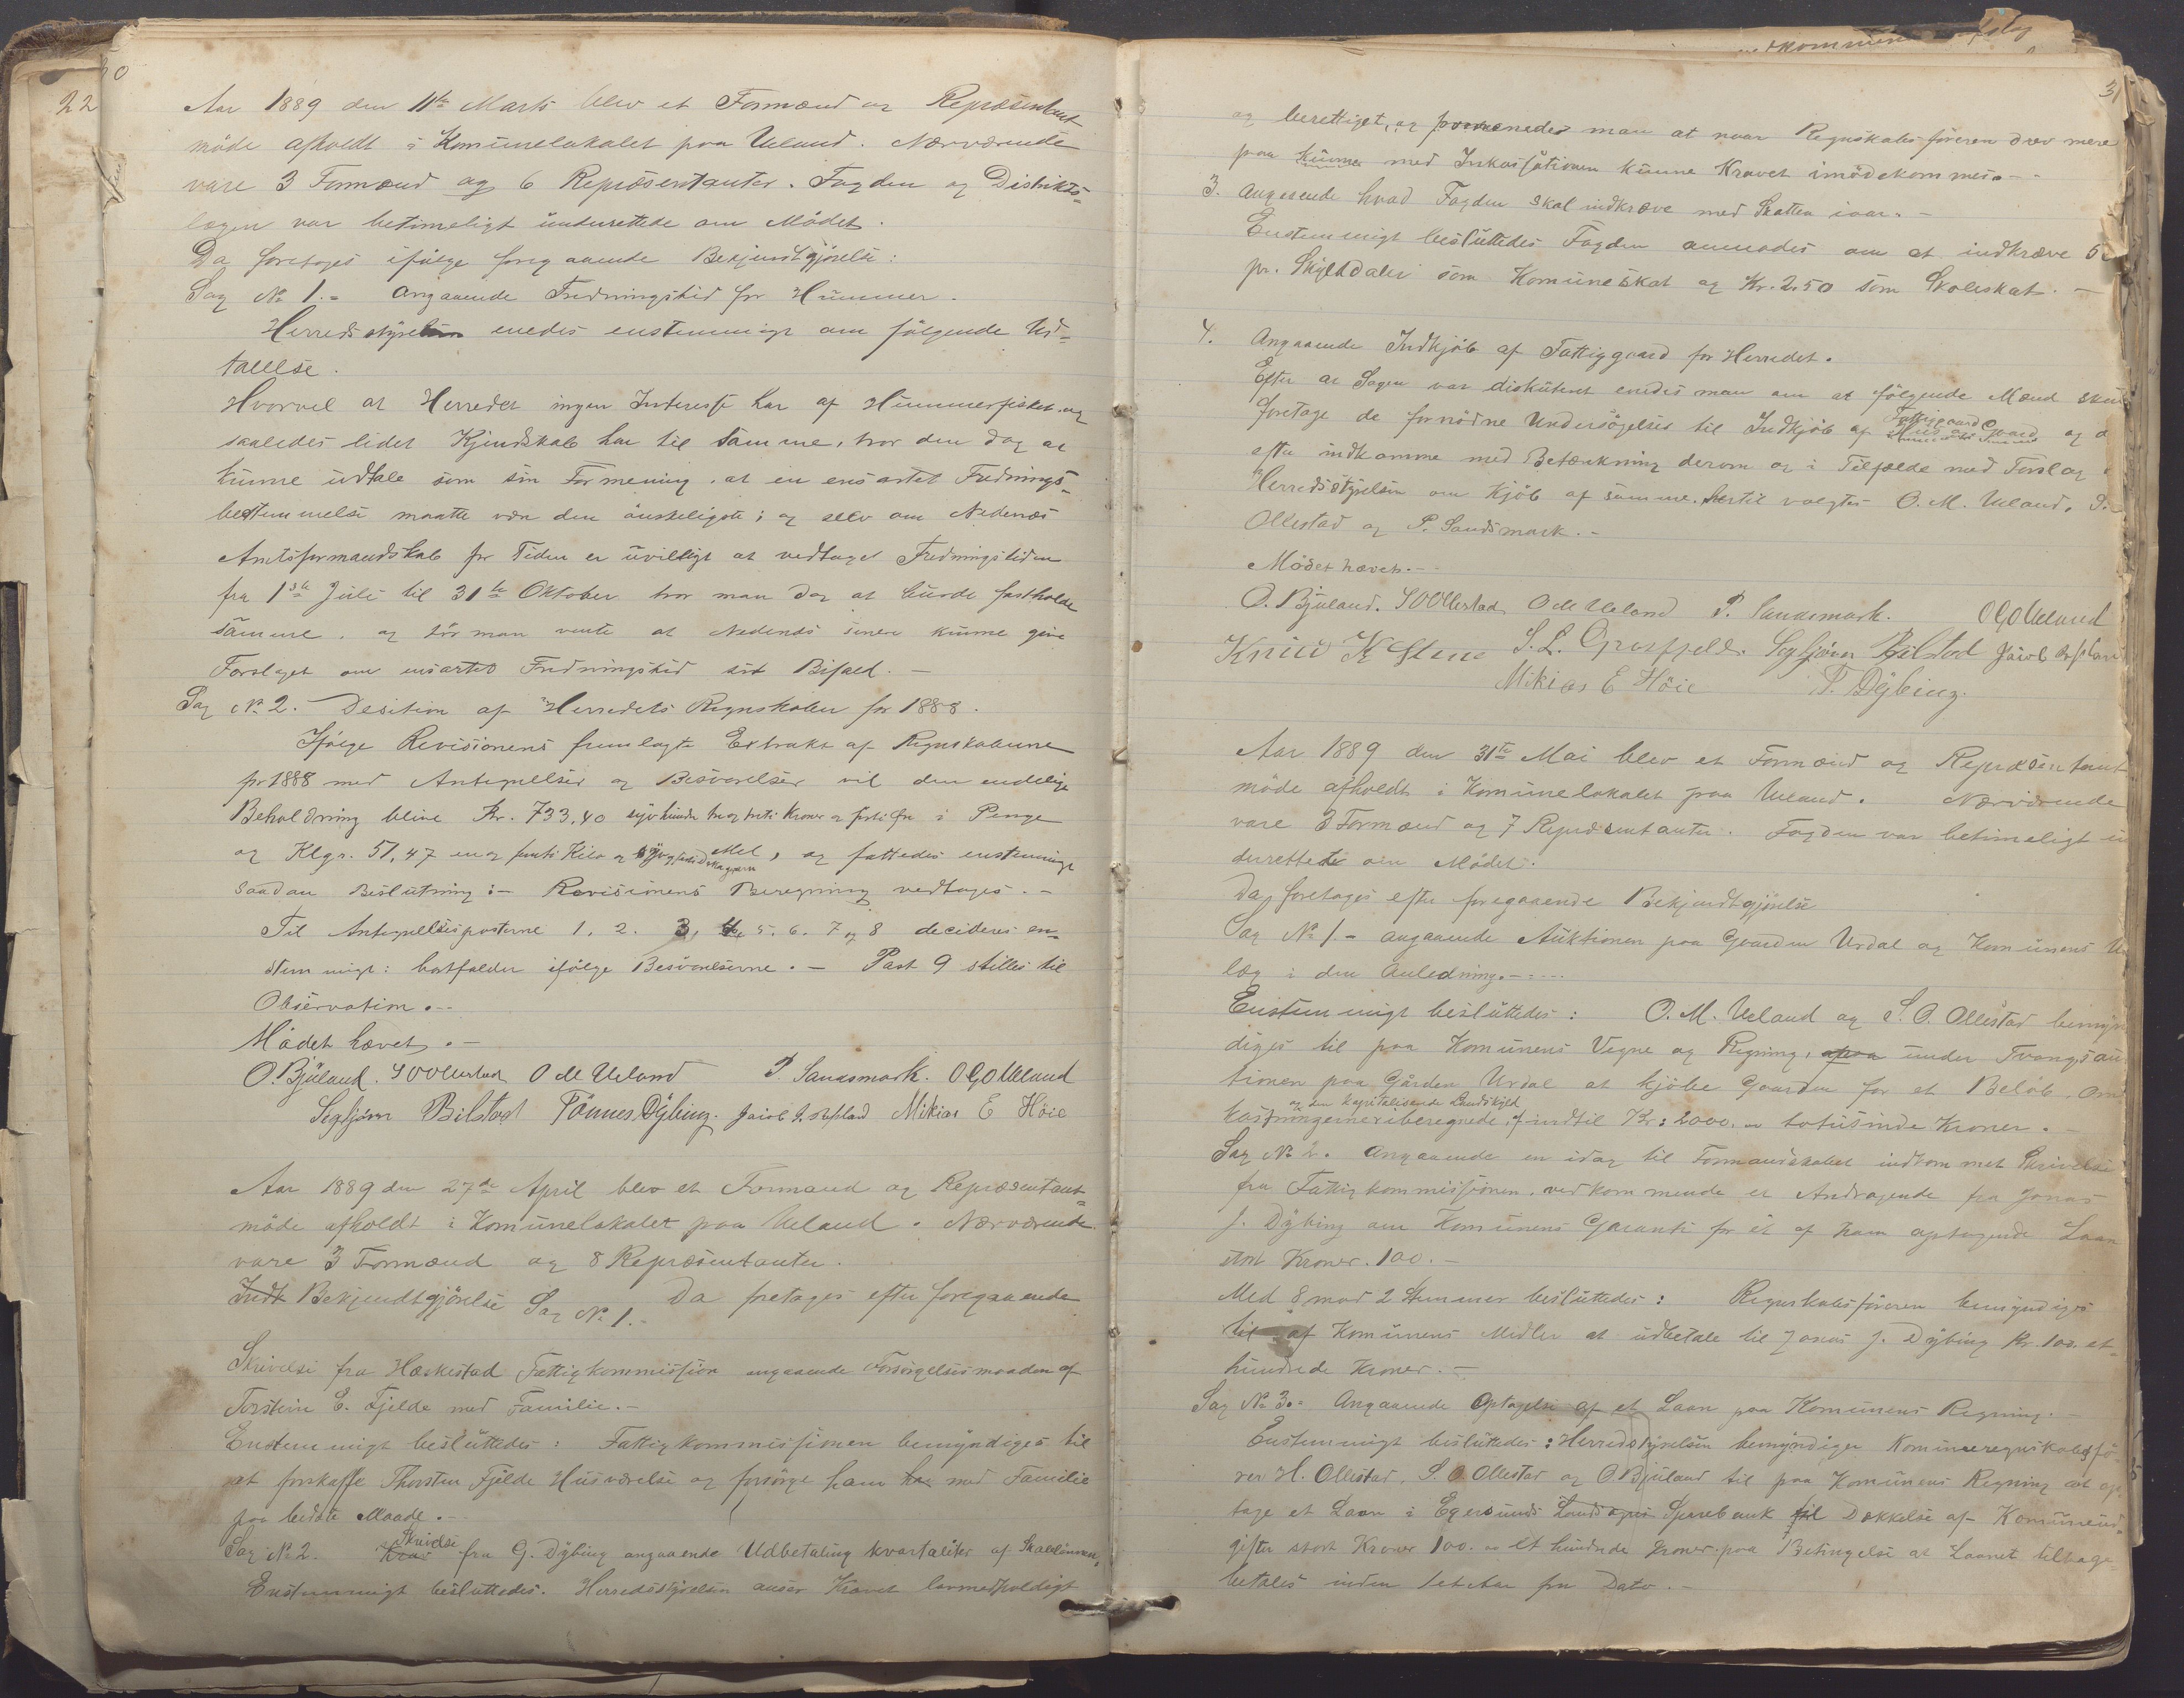 30
22
Aar 1889 den 11te Marts blev et Formænd og Repræsentant
möde afholdt i Komünelokalet paa Ueland. Nærværende
vare 3 Formænd og 6 Repræsentanter. Fogden og Distrikts-
lægen var betimeligt ünderrettede om Mödet.
Da foretages ifölge foregaaende Bekjendtgjörelse:
Sag No 1.- angaaende Fredningstid for Hümmer.
Herredsstyrelsen enedes enstemmigt om fölgende Ud-
talelse.
Hvorvel at Herredet ingen Interesse har af Hümmerfisket og
saaledes lidet Kjendskab har til samme, tror den dog at
künne üdtale som sin Formening, at en ensartet Frednings-
bestemmelse maatte være den önskeligste; og selv om Nedenæs
Amtsformandskab for Tiden er üvilligt at vedtaget Fredningstiden
fra 1ste Jüli til 31te Oktober tror man dog at bürde fastholde
samme, og tör man vente at Nedenæs senere künne give
Forslaget om ensartet Fredningstid sit Bifald.-
Sag No 2. Desition af Herredets Regnskaber for 1888.
Ifölge Revisionens fremlagte Extrakt af Regnskaberne
for 1888 med Antegnelser og Besvarelser vil den endelige
Beholdning blive Kr. 733,40 syvhündre tre og treti Kroner og forti Öre i Penge
og Klgr. 51,47 en og femti Kilo og syv og forti Dekagram Mel, og fattedes enstemmigt
saadan Beslutning:- Revisionens Beregning vedtages.-
Til Antegnelsesposterne 1. 2. 3. 4. 5. 6. 7 og 8 decideres en-
stemmigt: bortfalder ifölge Besvarelserne.- Post 9 stilles til
Observation.-
Mödet hævet.-
O. Bjüland. S O Ollestad O M Ueland P. Sandsmark. O G O Ueland
Segbjörn Bilstad Tönnes Dÿbing. Jacob J. Refsland Mikias E Höie
Aar 1889 den 27de April blev et Formænd og Repræsentant-
möde afholdt i Komünelokalet paa Ueland. Nærværende
vare 3 Formænd og 8 Repræsentanter.
Indk Bekjendtgjörelse Sag No 1.- Da foretages efter foregaaende
Skrivelse fra Heskestad Fattigkommission angaaende Forsörgelsesmaaden af
Torstein E. Fjelde med Familie.-
Enstemmigt beslüttedes: Fattigkommissionen bemyndiges til
at forskaffe Thorsten Fjelde Hüsværelse og forsörge ham med Familie
paa bedste Maade.-
Sag No 2. Krav Skrivelse fra G. Dÿbing angaaende Udbetaling kvartaliter af Skolelönnen.
Enstemmigt beslüttedes. Herredsstyrelsen anser Kravet lovmedholdigt
31
og berettiget, og formenedes man at naar Regnskabsföreren drev mere
paa künne med Inkassationen künne Kravet imödekommes.-
3. Angaaende hvad Fogden skal indkræve med Skatten iaar.-
Enstemmigt beslüttedes Fogden anmodes om at indkræve
pr. Skylddaler som Komüneskat og Kr. 2.50 som Skoleskat.-
4. Angaaende Indkjöb af Fattiggaard for Herredet.
Efter at Sagen var disküteret enedes man om at fölgende Mænd
foretage de fornödne Undersögelser til Indkjöb af Hüs og Gaard Fattiggaard og
efter indkomme med Betænkning derom og i Tilfælde med Forslag
Herredsstyrelsen om Kjöb af samme. Hertil valgtes O. M. Ueland, S.
Ollestad og P. Sandsmark.-
Mödet hævet.-
O. Bjüland. S O Ollestad O M Ueland P. Sandsmark. O G O Ueland
Knüd K Stene S. L. Grøsfjeld. Segbjörn Bilstad Jacob Refsland
Mikias E Höie T. Dÿbing.
Aar 1889 den 31te Mai blev et Formænd og Repræsentant
möde afholdt i Komünelokalet paa Ueland. Nærværende
vare 3 Formænd og 7 Repræsentanter. Fogden var betimeligt ün
derrettede om Mödet.
Da foretages efter foregaaende Bekjendtgjörelse
Sag No 1.- angaaende Auktionen paa Gaarden Urdal og Komünens
læg i den Anledning.-
Enstemmigt beslüttedes: O. M. Ueland og S. O. Ollestad bemÿn
diges til paa Komünens Vegne og Regning, under Tvangsau
tionen paa Gården Urdal at kjöbe Gaarden for et Belöb, Om
kostningerne og den kapitaliserede Landskyld iberegnede, af indtil Kr: 2000.- totüsinde Kroner.-
Sag No 2. Angaaende en idag til Formandskabet indkommet Skrivelse
fra Fattigkommissionen, vedkommende et Andragende fra Jonas
J. Dÿbing om Komünens Garanti for et af ham optagende Laan
stort Kroner. 100.-
Med 8 mod 2 Stemmer beslüttedes: Regnskabsföreren bemyndiges
til af Komünens Midler at üdbetale til Jonas J. Dÿbing Kr. 100. et-
hündrede Kroner.-
Sag No 3.- Angaaende Optagelse af et Laan paa Komünens Regning.-
Enstemmigt beslüttedes: Herredsstyrelsen bemyndiger Komüneregnskabsfö-
rer H. Ollestad, S. O. Ollestad og O. Bjüland til paa Komünens Regning at op-
tage et Laan i Egersünds Landsogns Sparebank til Dækkelse af Komüneüd-
gifter stort Kroner 100.- et hündrede Kroner paa Betingelse at Laanet tilbage-
betales inden 1 et Aar fra Dato.-